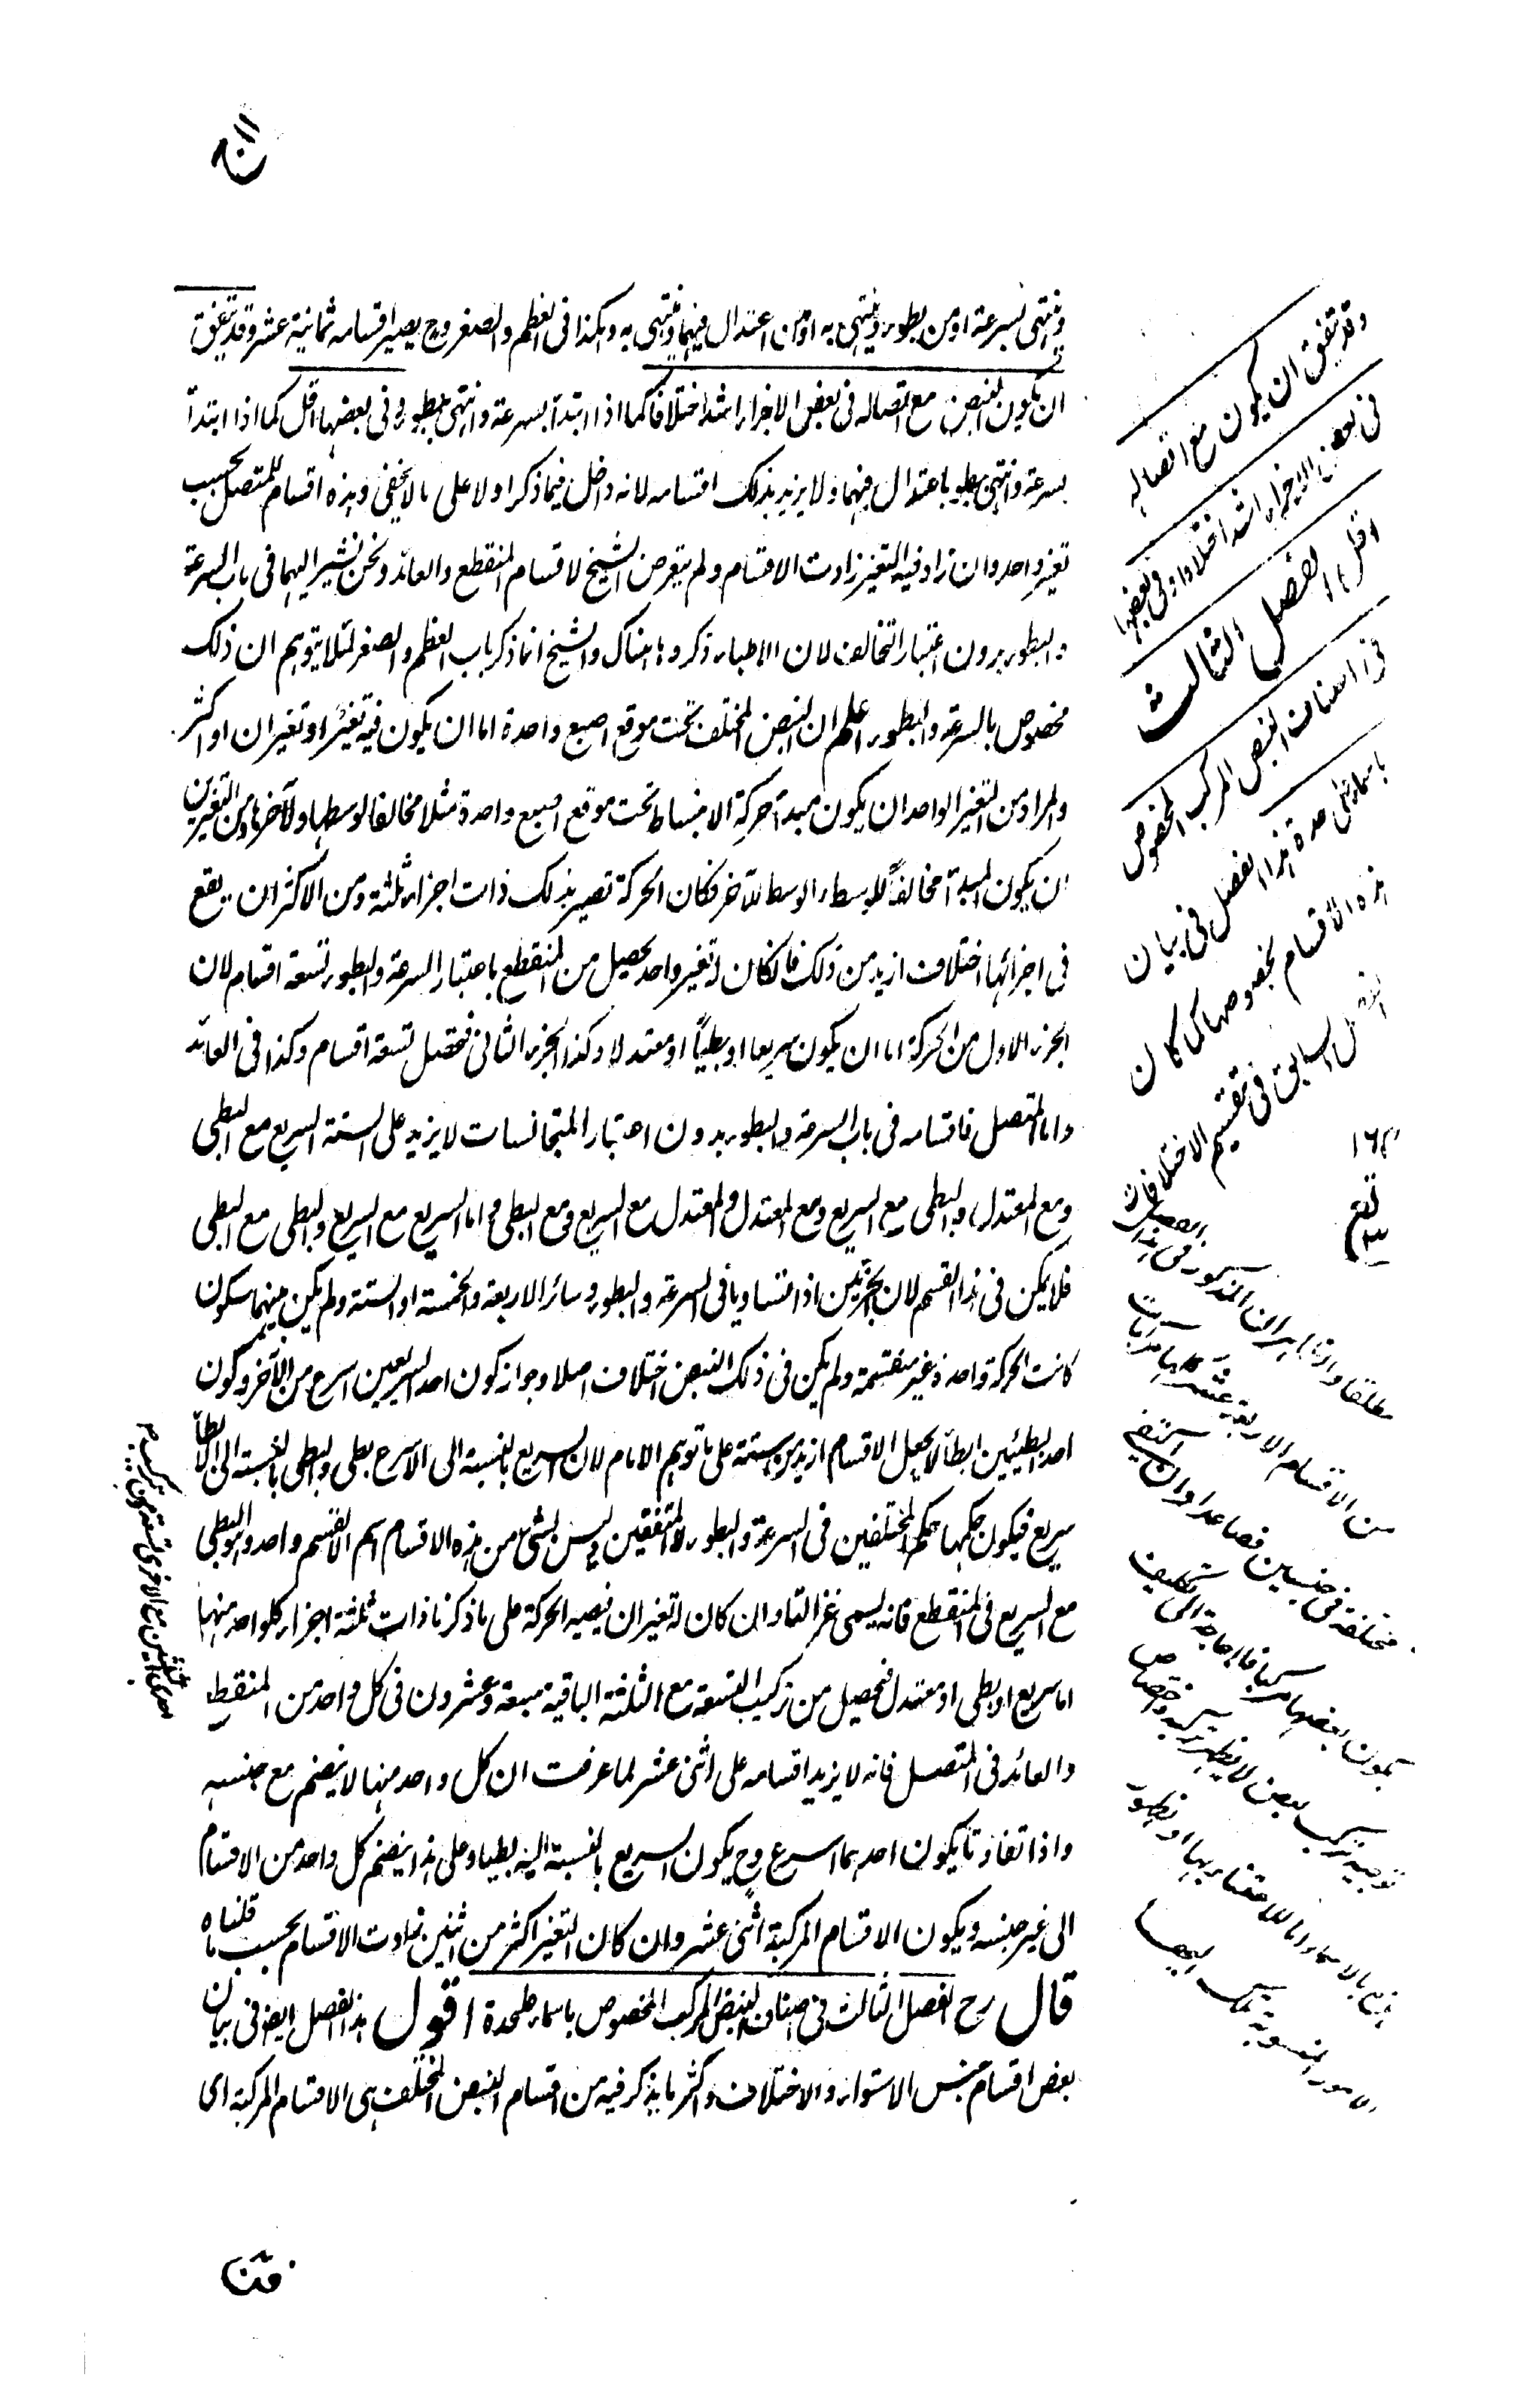 وينتهى بسرعة او من بطوء وينتهى به او من اعتدال فيهما وينتهى به وهكذا فى العظم والصغر وح يصير اقسامه ثمانية عشر وقد يتفق
ان يكون النبض مع اتصاله فى بعض الاجزاء اشد اختلافا كما اذا ابتدأ بسرعة وانتهى ببطوء وفى بعضها اقل كما اذا ابتدأ
بسرعة وانتهى باعتدال فيهما ولا يزيد بذلك اقسامه لانه داخل فيما ذكر اولا على ما لا يخفى وهذه اقسام للمتصل بحسب
تغير واحد وان زاد فيه التغير زادت الاقسام ولم يتعرض الشيخ لاقسام المنقطع والعائد ونحن نشير اليهما فى باب السرعة
والبطوء بدون اعتبار التخالف لان الاطباء ذكروها هناك والشيخ انما ذكر باب العظم والصغر لئلا يتوهم ان ذلك
مخصوص بالسرعة والبطوء اعلم ان النبض المختلف تحت موقع اصبع واحدة اما ان يكون فيه تغير او تغيران او اكثر
والمراد من التغير الواحد ان يكون مبدأ حركة الانبساط تحت موقع اصبع واحدة مثلا مخالفا لوسطها ولآخرها ومن التغيرين
ان يكون المبدأ مخالفاً للوسط والوسط للآخر فكان الحركة تصير بذلك ذات اجزاء ثلثة ومن الاكثر ان يقع
فى اجزائها اختلاف ازيد من ذلك فان كان له تغير واحد يحصل من المنقطع باعتبار السرعة والبطوء تسعة اقسام لان
الجزء الاول من الحركة اما ان يكون سريعا او بطيئاً او معتدلا وكذا الجزء الثانى فتحصل تسعة اقسام وكذا فى العائد
واما المتصل فاقسامه فى باب السرعة والبطوء بدون اعتبار المتجانسات لا يزيد على الستة السريع مع البطى
ومع المعتدل والبطى مع السريع ومع المعتدل والمعتدل مع السريع ومع البطى واما السريع مع السريع والبطى مع البطى
فلا يمكن فى هذا القسم لان الجزئين اذا تساويا فى السرعة والبطوء وسائر الاربعة والخمسة او الستة ولم يكن بينهما سكون
كانت الحركة واحدة غير منقسمة ولم يكن فى ذلك النبض اختلاف اصلا وجواز كون احد السريعين اسرع من الآخر وكون
احد البطيئين ابطأ لا يجعل الاقسام ازيد من ستة على ما توهم الامام لان السريع بالنسبة الى الاسرع بطى والبطى بالنسبة الى الابطأ
سريع فيكون حكمهما حكم المختلفين فى السرعة والبطوء لا المتفقين وليس لشئ من هذه الاقسام اسم الا لقسم واحد وهو البطى
مع السريع فى المنقطع فانه يسمى غزاليا وان كان له تغيران فيصير الحركة على ما ذكرنا ذات ثلثة اجزاء كل واحد منها
اما سريع او بطى او معتدل فيحصل من تركيب التسعة مع الثلثة الباقية سبعة وعشرون فى كل واحد من المنقطع
والعائد فى المتصل فانه لا يزيد اقسامه على اثنى عشر لما عرفت ان كل واحد منها لا ينضم مع جنسه
واذا تفاوتا يكون احدهما اسرع وح يكون السريع بالنسبة اليه بطيا وعلى هذا ينضم كل واحد من الاقسام
الى غير جنسه ويكون الاقسام المركبة اثنى عشر وان كان التغير اكثر من اثنين زادت الاقسام بحسب ما قلناه
قال رح الفصل الثالث فى اصناف النبض المركب المخصوص باسماء على حدة اقول هذا الفصل ايضا فى بيان
بعض اقسام جنس الاستواء والاختلاف واكثر ما يذكر فيه من اقسام النبض المختلف هى الاقسام المركبة اى
وقد يتفق ان يكون مع اتصاله
فى بعض الاجزاء اشد اختلافا وفى بعضها
اقل الفصل الثالث
فى اصناف النبض المركب المخصوص
باسماء على حدة هذا الفصل فى بيان
هذه الاقسام بخصوصها كما كان
السابق فى تقسيم الاختلاف